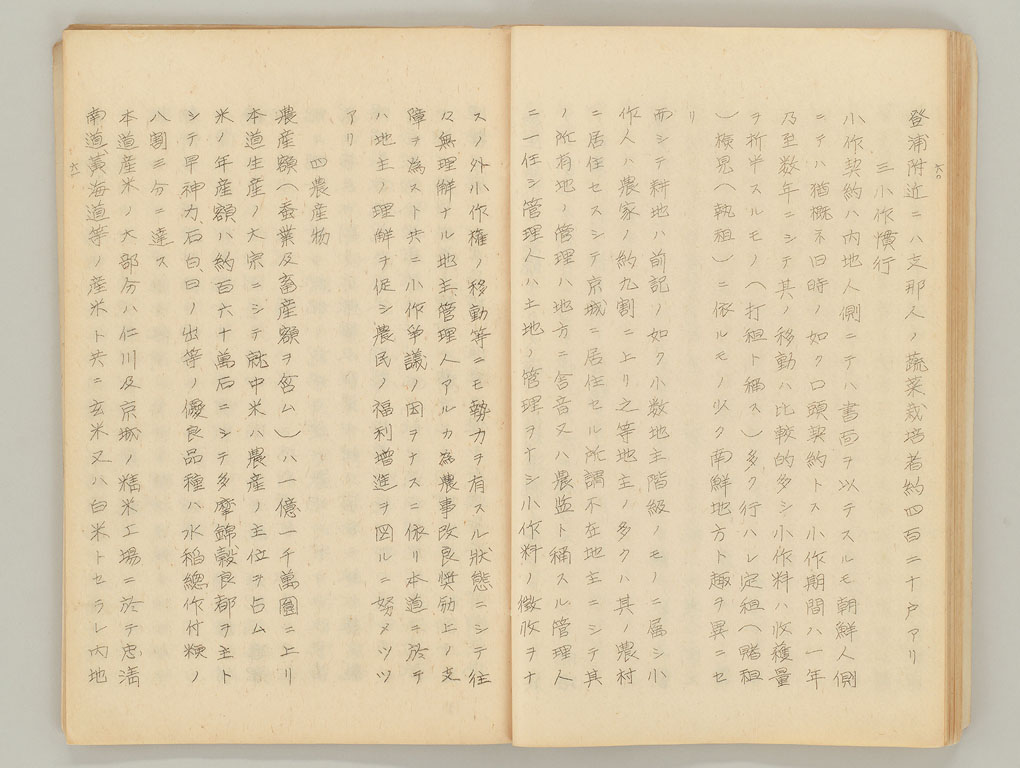 六〇
登浦附近ニハ支那人ノ蔬菜栽培者約四百二十戸アリ
三小作慣行
小作契約ハ内地人側ニテハ書面ヲ以テスルモ朝鮮人側
ニテハ猶概不旧時ノ如ク口頭契約トス小作期間ハ一年
乃至数年ニシテ其ノ移動ハ比較的多シ小作料ハ收穫量
ヲ折半スルモノ(打租ト稱ス)多ク行ハレ定租(賭租
)検見(執租)ニ依ルモノ以ク南鮮地方ト趣ヲ異ニセ
リ
而シテ耕地ハ前記ノ如ク小数地主階級ノモノニ属シ小
作人ハ農家ノ約九割ニ上リ之等地主ノ多クハ其ノ農村
ニ居住セスシテ京城ニ居住セル所謂不在地主ニシテ其
ノ所有地ノ管理ハ地方ニ舎音又ハ農監ト稱スル管理人
ニ一任シ管理人ハ土地ノ管理ヲナシ小作料ノ徴收ヲナ
スノ外小作權ノ移動等ニモ勢力ヲ有スル狀態ニシテ往
々無理解ナル地主管理人アルカ為農事改良奨励上ノ支
障ヲ為スト共ニ小作争議ノ因ヲナスニ依リ本道ニ於テ
ハ地主ノ理解ヲ促シ農民ノ福利増進ヲ図ルニ努メツツ
アリ
四農産物
農産額(蚕業及畜産額ヲ含ム)ハ一億一千萬圓ニ上リ
本道生産ノ大宗ニシテ就中米ハ農産ノ主位ヲ占ム
米ノ年産額ハ約百六十萬石ニシテ多摩錦穀良都ヲ主ト
シテ早神力、石白、日ノ出等ノ優良品種ハ水稲總作付粳ノ
八割三分ニ達ス
本道産米ノ大部分ハ仁川及京城ノ精米工場ニ於テ忠淸
南道、黃海道等ノ産米ト共ニ玄米又ハ白米トセラレ内地
六一